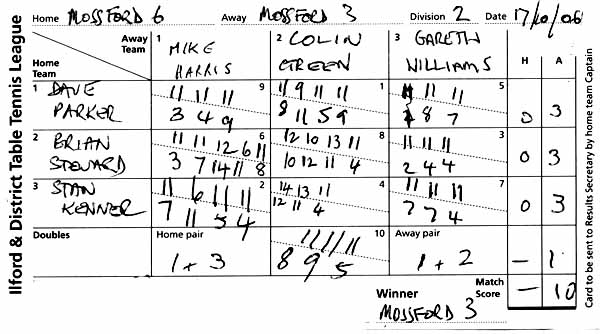 Ilford & District Table Tennis League
Home MOSSFORD 6 Away MOSSFORD 3 Division 2 Date 17/10/06
Away Team 1 MIKE HARRIS 2 COLIN GREEN 3 GARETH WILLIAMS H A
Home Team
1 DAVE PARKER 9 1 5
11 11 11 11 9 11 11 11 11 11
3 4 9 8 11 5 9 8 7 0 3
2 BRIAN STEWARD 6 8 3
11 11 12 6 11 12 10 13 11 11 11 11
3 7 14 11 8 10 12 11 4 2 4 4 0 3
3 STAN KENNER 2 4 7
11 6 11 11 14 13 11 11 11 11
7 11 5 4 12 11 4 7 7 4 0 3
Doubles Home pair 10 Away pair
11 11 11
1 + 3 8 9 5 1 + 2 - 1
Winner MOSSFORD 3 Match Score - 10
Card to be sent to Results Secretary by home team Captain